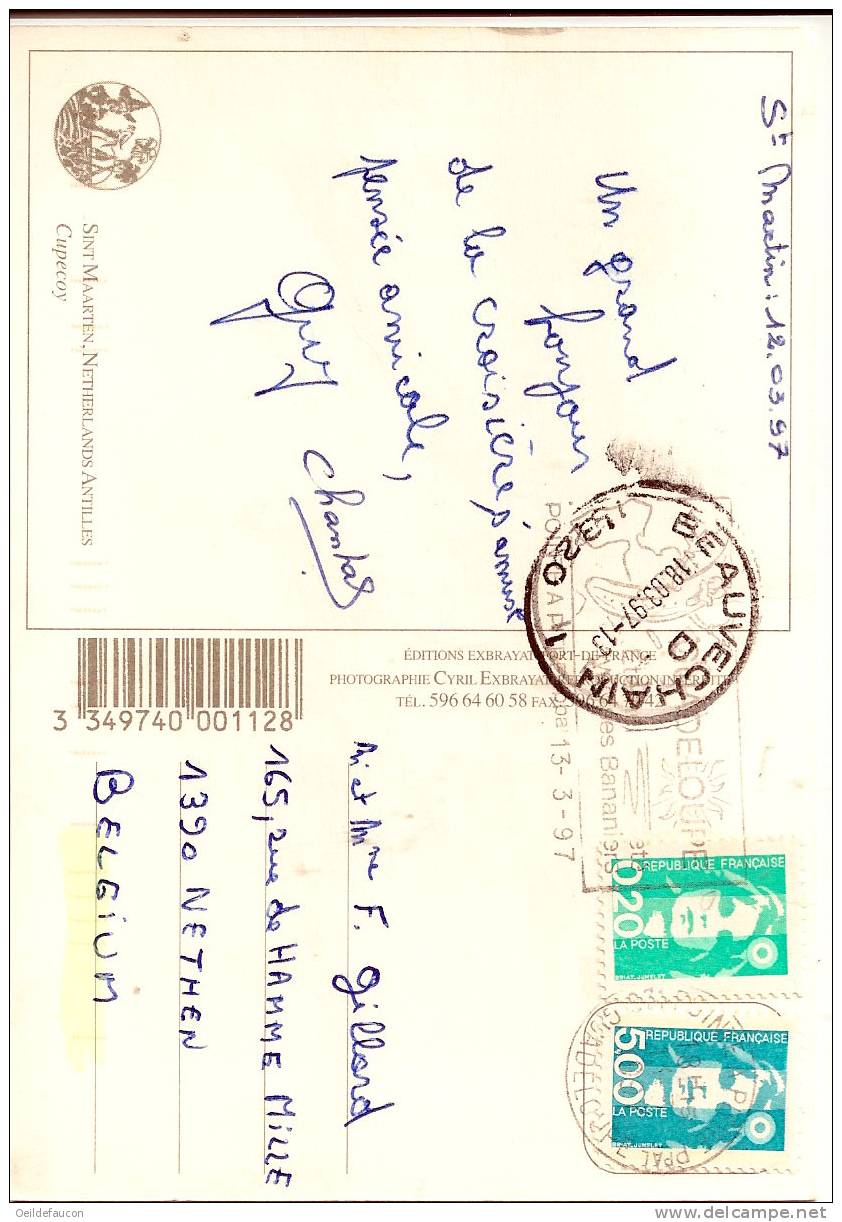 St Martin : 12.03.97
Un grand
bonjour
de la croisière s'amuse
pensée amicale,
Guy Chantal
SINT MAARTEN, NETHERLANDS ANTILLES
Cupecoy
ÉDITIONS EXBRAYAT FORT-DE-FRANCE
PHOTOGRAPHIE CYRIL EXBRAYAT REPRODUCTION INTERDITE
TÉL. 596 64 60 58 FAX 596 64
3 349740 001128
BEAUVECHAIN
1320 1
D
18.03.97-13
13-3-97
DELOUPE
des Bananiers
REPUBLIQUE FRANÇAISE
0,20
LA POSTE
BRIAT-JUMELET
REPUBLIQUE FRANÇAISE
5,00
LA POSTE
BRIAT-JUMELET
PPAL
GUADELOUPE
Mr et Mme F. Gillard
165, rue de HAMME MILLE
1390 NETHEN
BELGIUM
Oeildefaucon
www.delcampe.net